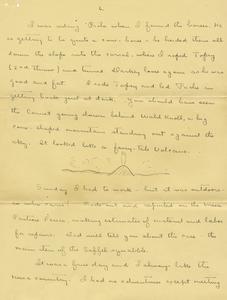 2
I was riding Pedro when I found the horses. He
is getting to be quite a cow-horse - he headed them all
down the slope into the corral, where I roped Topsy
(2nd throw) and turned Darkey loose again as he was
good and fat. I rode Topsy and led Pedro in
getting back just at dark. You should have seen
the Comet going down behind Wald Knoll, a big
cow-shaped mountain standing out against the
sky. It looked like a fairy-tale Volcano.
Sunday I had to work - but it was outdoors
rode out and reported on the
making estimates of material and labor
for repairs. Dad will tell you about the case - the
main item of the squabble.
It was a fine day and I always like the
country. I had no adventures except meeting